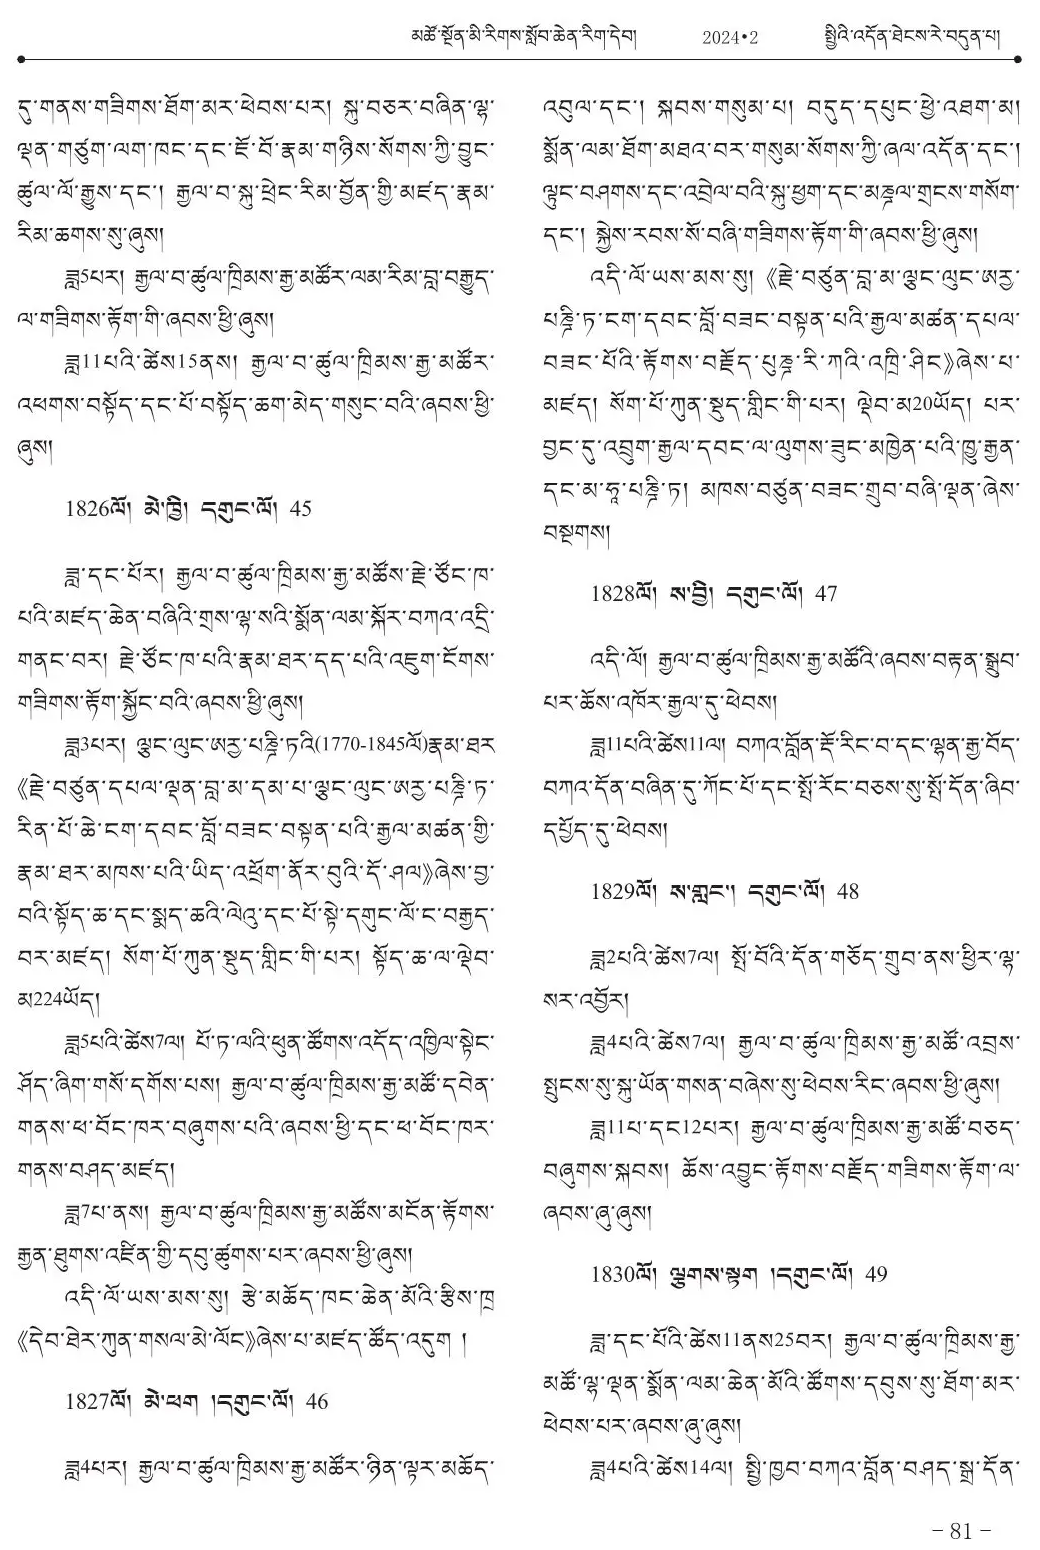 མཚོ་སྔོན་མི་རིགས་སློབ་ཆེན་རིག་དེབ། 2024•2 སྤྱིའི་འདོན་ཐེངས་རེ་བདུན་པ།
དུ་གནས་གཟིགས་ཐོག་མར་ཕེབས་པར། སྐུ་བཅར་བཞིན་ལྷ་
ལྡན་གཙུག་ལག་ཁང་དང་ཇོ་བོ་རྣམ་གཉིས་སོགས་ཀྱི་བྱུང་
ཚུལ་ལོ་རྒྱུས་དང་། རྒྱལ་བ་སྐུ་ཕྲེང་རིམ་བྱོན་གྱི་མཛད་རྣམ་
རིམ་ཆགས་སུ་ཞུས།
ཟླ5པར། རྒྱལ་བ་ཚུལ་ཁྲིམས་རྒྱ་མཚོར་ལམ་རིམ་བླ་བརྒྱུད་
ལ་གཟིགས་རྟོག་གི་ཞབས་ཕྱི་ཞུས།
ཟླ11པའི་ཚེས15ནས། རྒྱལ་བ་ཚུལ་ཁྲིམས་རྒྱ་མཚོར་
འཕགས་བསྟོད་དང་པོ་བསྟོད་ཆག་མེད་གསུང་བའི་ཞབས་ཕྱི་
ཞུས།
1826ལོ། མེ་ཁྱི། དགུང་ལོ། 45
ཟླ་དང་པོར། རྒྱལ་བ་ཚུལ་ཁྲིམས་རྒྱ་མཚོས་རྗེ་ཙོང་ཁ་
པའི་མཛད་ཆེན་བཞིའི་གྲས་ལྷ་སའི་སྨོན་ལམ་སྐོར་བཀའ་འདྲི་
གནང་བར། རྗེ་ཙོང་ཁ་པའི་རྣམ་ཐར་དད་པའི་འཇུག་ངོགས་
གཟིགས་རྟོག་སྐྱོང་བའི་ཞབས་ཕྱི་ཞུས།
ཟླ3པར། ལྕང་ལུང་ཨརྱ་པཎྜི་ཏའི(1770-1845ལོ)རྣམ་ཐར
《རྗེ་བཙུན་དཔལ་ལྡན་བླ་མ་དམ་པ་ལྕང་ལུང་ཨརྱ་པཎྜི་ཏ་
རིན་པོ་ཆེ་ངག་དབང་བློ་བཟང་བསྟན་པའི་རྒྱལ་མཚན་གྱི་
རྣམ་ཐར་མཁས་པའི་ཡིད་འཕྲོག་ནོར་བུའི་དོ་ཤལ》ཞེས་བྱ་
བའི་སྟོད་ཆ་དང་སྨད་ཆའི་ལེའུ་དང་པོ་སྟེ་དགུང་ལོ་ང་བརྒྱད་
བར་མཛད། སོག་པོ་ཀུན་སྡུད་གླིང་གི་པར། སྟོད་ཆ་ལ་ལྡེབ་
མ224ཡོད།
ཟླ5པའི་ཚེས7ལ། པོ་ཏ་ལའི་ཕུན་ཚོགས་འདོད་འཁྱིལ་སྟེང་
ཤོད་ཞིག་གསོ་དགོས་པས། རྒྱལ་བ་ཚུལ་ཁྲིམས་རྒྱ་མཚོ་དབེན་
གནས་ཕ་བོང་ཁར་བཞུགས་པའི་ཞབས་ཕྱི་དང་ཕ་བོང་ཁར་
གནས་བཤད་མཛད།
ཟླ7པ་ནས། རྒྱལ་བ་ཚུལ་ཁྲིམས་རྒྱ་མཚོས་མངོན་རྟོགས་
རྒྱན་ཐུགས་འཛིན་གྱི་དབུ་ཚུགས་པར་ཞབས་ཕྱི་ཞུས།
འདི་ལོ་ཡས་མས་སུ། རྩེ་མཆོད་ཁང་ཆེན་མོའི་རྩིས་ཁྲ
《དེབ་ཐེར་ཀུན་གསལ་མེ་ལོང》ཞེས་པ་མཛད་ཚོད་འདུག །
1827ལོ། མེ་ཕག །དགུང་ལོ། 46
ཟླ4པར། རྒྱལ་བ་ཚུལ་ཁྲིམས་རྒྱ་མཚོར་ཉིན་ལྟར་མཆོད་
འབུལ་དང་། སྐབས་གསུམ་པ། བདུད་དཔུང་ཕྱེ་འཐག་མ།
སྨོན་ལམ་ཐོག་མཐའ་བར་གསུམ་སོགས་ཀྱི་ཞལ་འདོན་དང་།
ལྟུང་བཤགས་དང་འབྲེལ་བའི་སྐུ་ཕྱག་དང་མཎྜལ་གྲངས་གསོག་
དང་། སྐྱེས་རབས་སོ་བཞི་གཟིགས་རྟོག་གི་ཞབས་ཕྱི་ཞུས།
འདི་ལོ་ཡས་མས་སུ། 《རྗེ་བཙུན་བླ་མ་ལྕང་ལུང་ཨརྱ་
པཎྜི་ཏ་ངག་དབང་བློ་བཟང་བསྟན་པའི་རྒྱལ་མཚན་དཔལ་
བཟང་པོའི་རྟོགས་བརྗོད་པུཎྜ་རི་ཀའི་འཁྲི་ཤིང》ཞེས་པ་
མཛད། སོག་པོ་ཀུན་སྡུད་གླིང་གི་པར། ལྡེབ་མ20ཡོད། པར་
བྱང་དུ་འབྲུག་རྒྱལ་དབང་ལ་ལུགས་ཟུང་མཁྱེན་པའི་ཁྱུ་རྒྱན་
དང་མ་ཧཱ་པཎྜི་ཏ། མཁས་བཙུན་བཟང་གྲུབ་བཞི་ལྡན་ཞེས་
བསྔགས།
1828ལོ། ས་བྱི། དགུང་ལོ། 47
འདི་ལོ། རྒྱལ་བ་ཚུལ་ཁྲིམས་རྒྱ་མཚོའི་ཞབས་བརྟན་སྒྲུབ་
པར་ཆོས་འཁོར་རྒྱལ་དུ་ཕེབས།
ཟླ11པའི་ཚེས11ལ། བཀའ་བློན་རྡོ་རིང་བ་དང་ལྷན་རྒྱ་བོད་
བཀའ་དོན་བཞིན་དུ་ཀོང་པོ་དང་སྤོ་རོང་བཅས་སུ་སྤོ་དོན་ཞིབ་
དཔྱོད་དུ་ཕེབས།
1829ལོ། ས་གླང་། དགུང་ལོ། 48
ཟླ2པའི་ཚེས7ལ། སྤོ་བོའི་དོན་གཅོད་གྲུབ་ནས་ཕྱིར་ལྷ་
སར་འབྱོར།
ཟླ4པའི་ཚེས7ལ། རྒྱལ་བ་ཚུལ་ཁྲིམས་རྒྱ་མཚོ་འབྲས་
སྤུངས་སུ་སྐུ་ཡོན་གསན་བཞེས་སུ་ཕེབས་རིང་ཞབས་ཕྱི་ཞུས།
ཟླ11པ་དང12པར། རྒྱལ་བ་ཚུལ་ཁྲིམས་རྒྱ་མཚོ་བཅད་
བཞུགས་སྐབས། ཆོས་འབྱུང་རྟོགས་བརྗོད་གཟིགས་རྟོག་ལ་
ཞབས་ཞུ་ཞུས།
1830ལོ། ལྕགས་སྟག །དགུང་ལོ། 49
ཟླ་དང་པོའི་ཚེས11ནས25བར། རྒྱལ་བ་ཚུལ་ཁྲིམས་རྒྱ་
མཚོ་ལྷ་ལྡན་སྨོན་ལམ་ཆེན་མོའི་ཚོགས་དབུས་སུ་ཐོག་མར་
ཕེབས་པར་ཞབས་ཞུ་ཞུས།
ཟླ4པའི་ཚེས14ལ། སྤྱི་ཁྱབ་བཀའ་བློན་བཤད་སྒྲ་དོན་
- 81 -